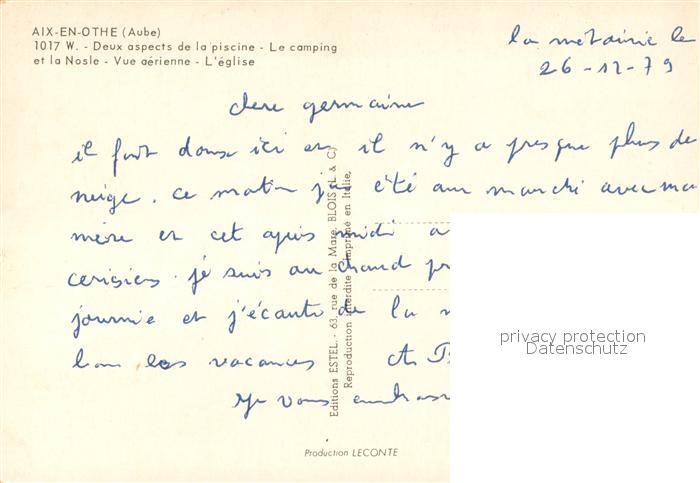 AIX-EN-OTHE (Aube)
1017 W. - Deux aspects de la piscine - Le camping
et la Nosle - Vue aérienne - L'église
la métairie le
26-12-79
chere germaine
il fait doux ici et il n'y a presque plus de
neige. ce matin j'ai été au marché avec ma
mère et cet après midi a
cerisiers. je suis au chaud
journée et j'écoute de la
les vacances
Je vous embrasse
Editions ESTEL. - 63, rue de la Mare, BLOIS (L & C)
Reproduction interdite - Imprimé en Italie.
Production LECONTE
privacy protection
Datenschutz